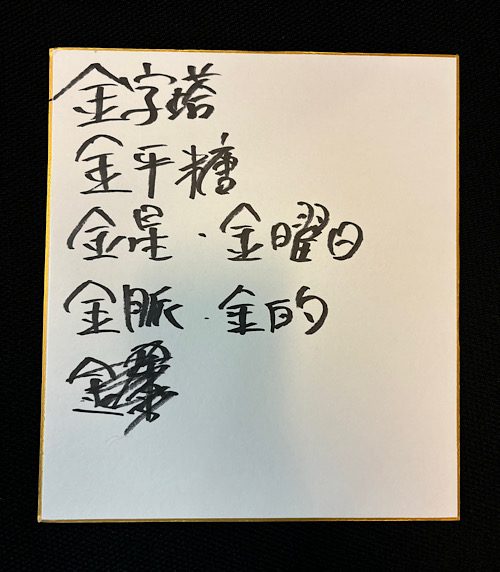 金字塔
金平糖
金星・金曜日
金脈・金的